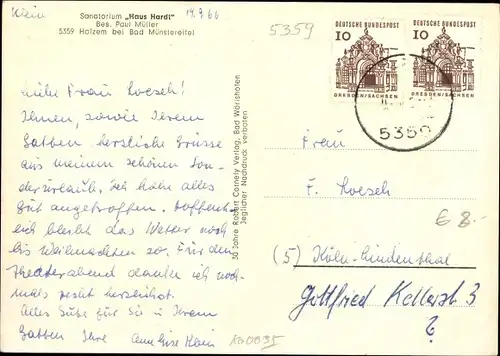 Klein
14.9.66
Sanatorium „Haus Hardt"
Bes. Paul Müller
5359 Holzem bei Bad Münstereifel
Liebe Frau Loesch!
Ihnen, sowie Ihrem
Gatten herzliche Grüsse
aus meinem schönen Son-
derurlaub. Ich habe alles
gut angetroffen. Hoffent-
lich bleibt das Wetter noch
bis Weihnachten so. Für den
Theaterabend danke ich noch-
mals recht herzlichst.
Alles Gute für Sie u. Ihrem
Gatten Ihre Anneliese Klein
100035
30 Jahre Robert Cornely Verlag, Bad Wörishofen
Jeglicher Nachdruck verboten
5359
DEUTSCHE BUNDESPOST
10
DRESDEN/SACHSEN
DEUTSCHE BUNDESPOST
10
DRESDEN/SACHSEN
5359
Frau
F. Loesch
€ 8.-
(5) Köln-Lindenthal
Gottfried Kellerstr 3
?